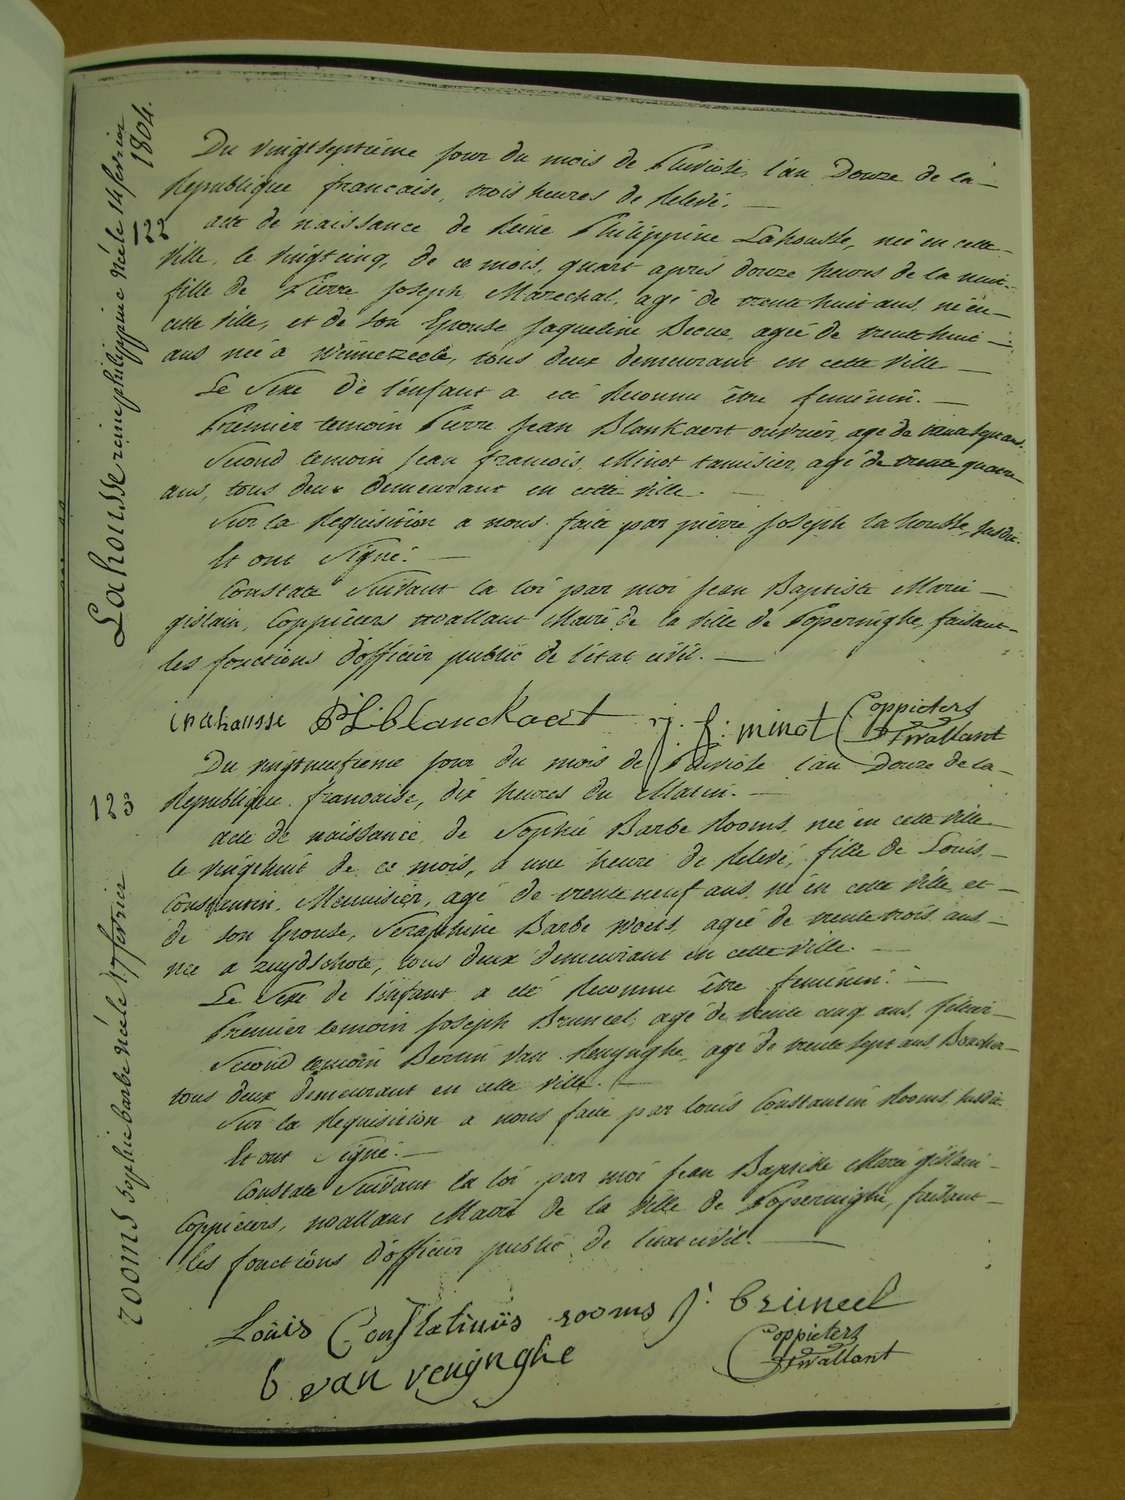 Lahousse reine philippine née le 14 fevrier
1804.
Du vingtseptieme jour du mois de Pluviose, l'an Douze de la
Republique francaise, trois heures de Relevé.
122
acte de naissance de Reine Philippine Lahousse, née en cette
ville, le vingtcinq, de ce mois, quart apres douze heures de la nuit
fille de Pierre Joseph, Marechal, agé de trente huit ans, né en
cette ville, et de son Epouse Jaqueline Becue, agée de trente huit
ans née a Winnezeele, tous deux demeurant en cette ville
Le Sexe de l'enfant a eté Reconnu être feminin.
Premier temoin Pierre Jean Blankaert ouvrier, agé de trente sept ans
Second temoin Jean francois Minot tamisier, agé de trente quatre
ans, tous deux demeurant en cette ville.
Sur la Requisition a nous faite par pierre Joseph la housse, susdit.
Et ont Signé.
Constaté Suivant la loi par moi Jean Baptiste Marie
gislain, Coppieters wallant Maire de la ville de Poperinghe, faisant
les fonctions d'officier public de l'etat civil.
Lahousse P I blanckaert j. f. minot Coppieters
T'wallant
Du vingtneufieme jour du mois de Pluviose l'an Douze de la
Republique francaise, dix heures du Matin.
123
acte de naissance de Sophie Barbe Rooms, née en cette ville
le vingthuit de ce mois, a une heure de Relevé, fille de Louis
Constantin, Menuisier, agé de trente neuf ans, né en cette ville et
de son Epouse, Seraphine Barbe Woets, agée de trente trois ans
née a zuydschote, tous deux demeurant en cette ville.
Le Sexe de l'enfant a eté Reconnu être feminin.
Premier temoin Joseph Bruneel, agé de trente cinq ans, fileur
Second temoin Bertin Van Renynghe, agé de trente sept ans, Boucher
tous deux demeurant en cette ville.
Sur la Requisition a nous faite par louis Constantin Rooms, susdit
Et ont Signé.
Constaté Suivant la loi par moi Jean Baptiste Marie gislain
Coppieters, wallant Maire de la ville de Poperinghe, faisant
les fonctions d'officier public de l'etat civil.
rooms Sophie barbe Née le 17 fevrier
Loüis Constatinüs rooms J. brüneel
b van renÿnghe Coppieters
T'wallant